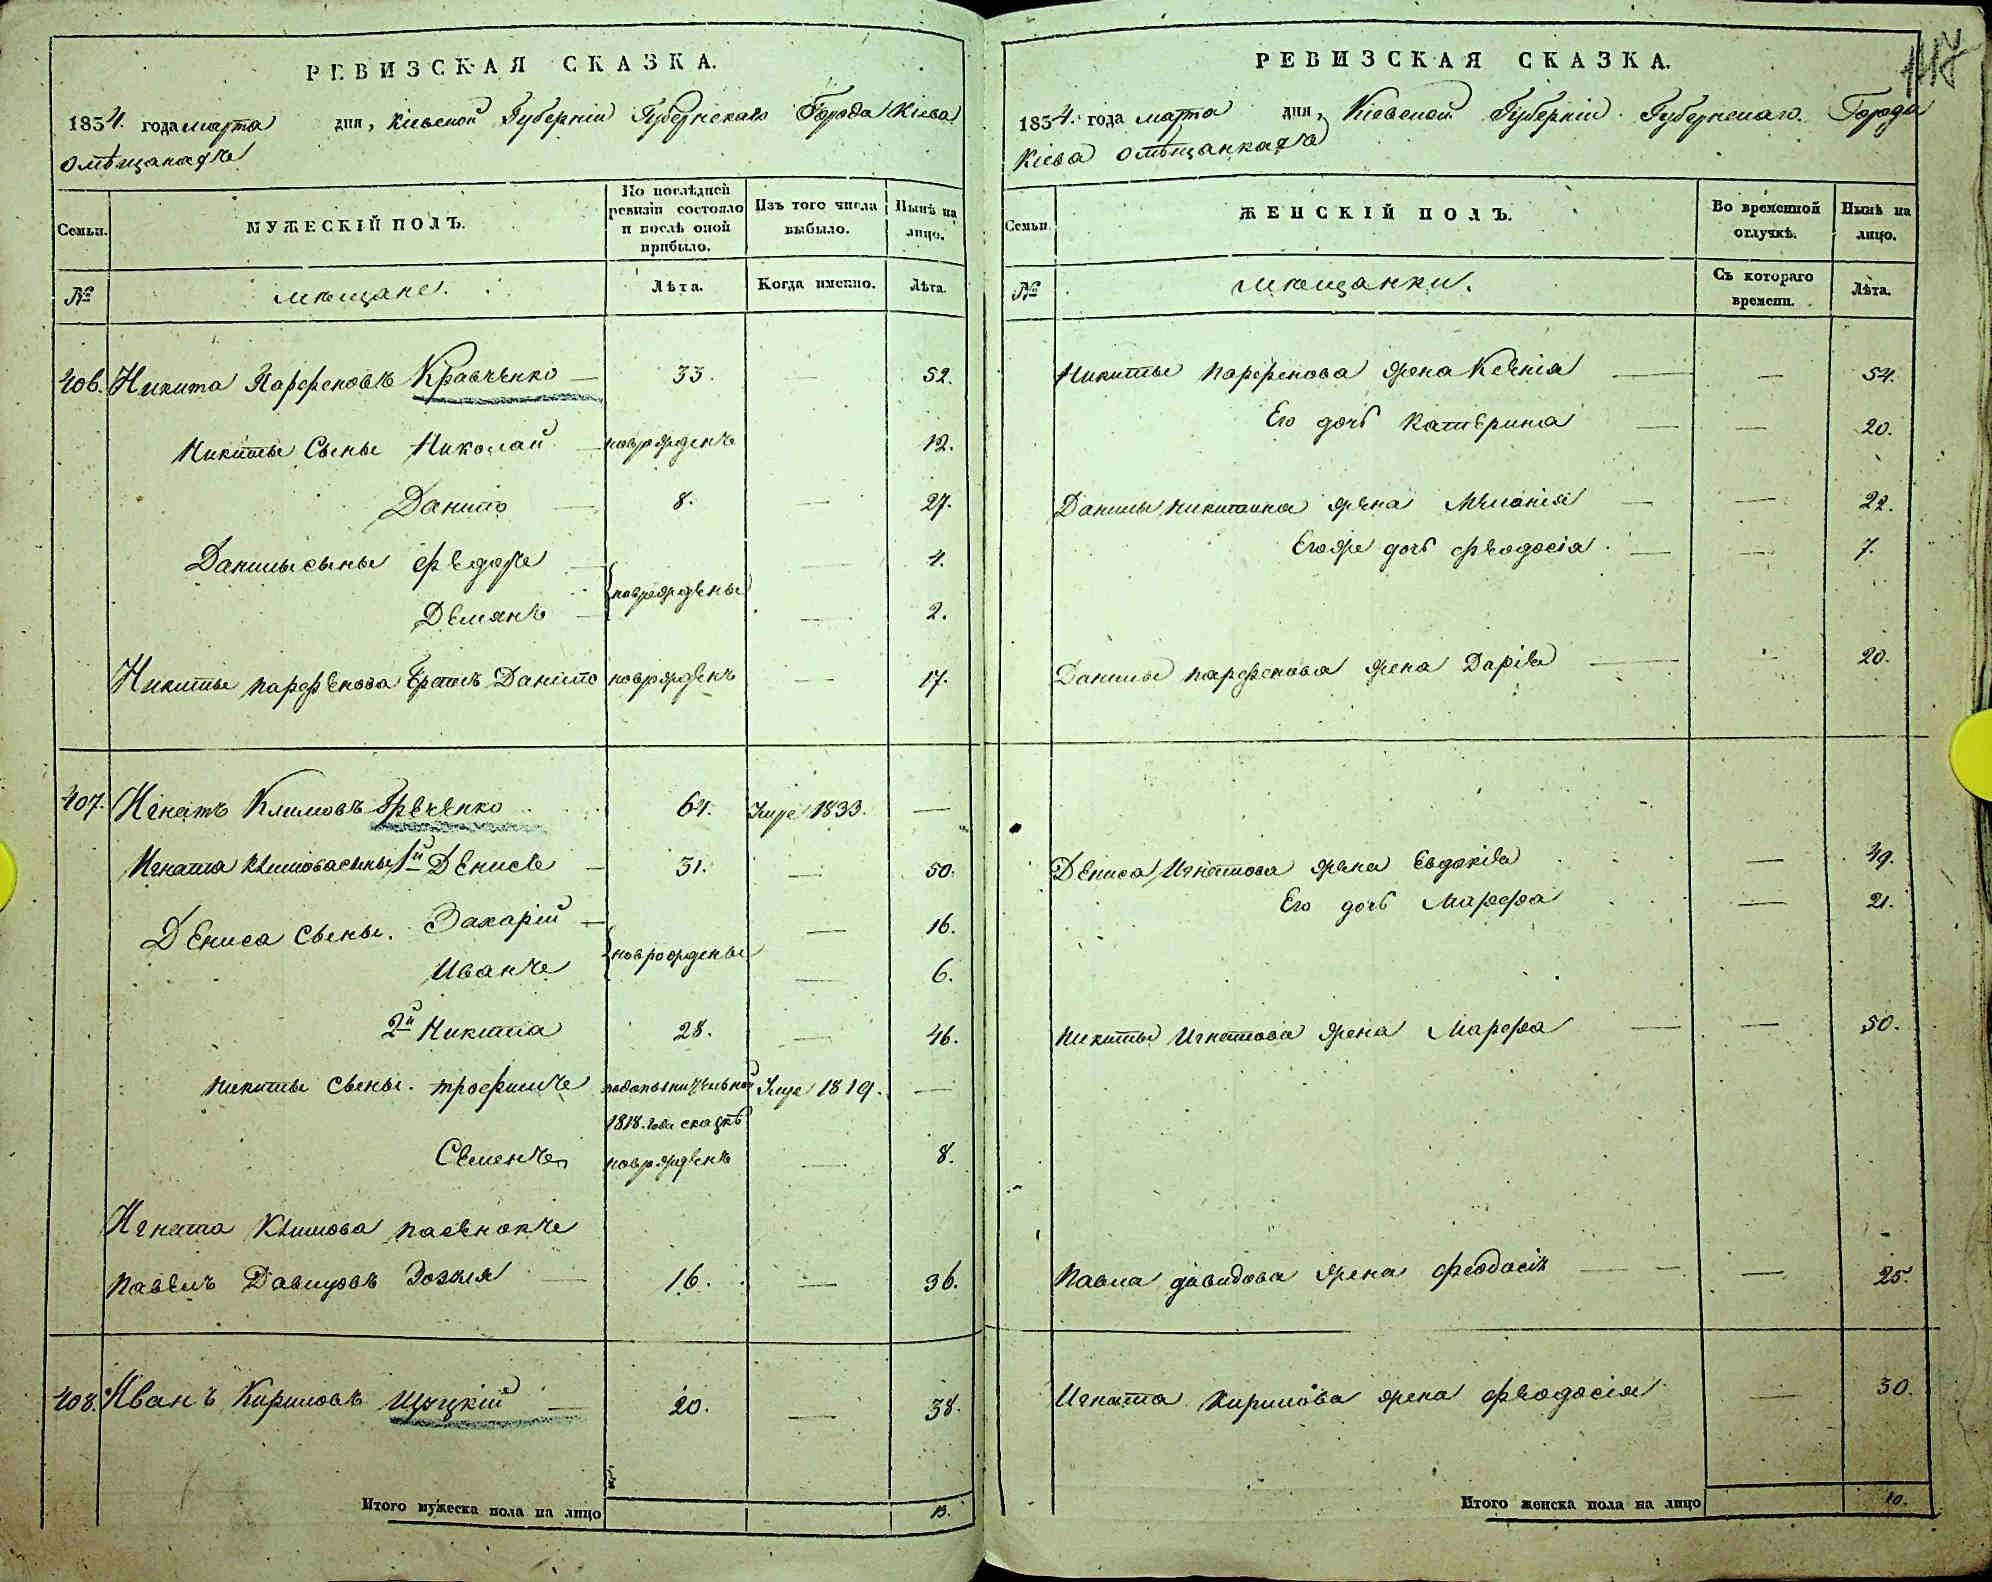 РЕВИЗСКАЯ СКАЗКА.
1834. года марта дня, Кіевской Губерніи Губернскаго Города Кіева
о мѣщанахъ
Семьи. МУЖЕСКІЙ ПОЛЪ. По послѣдней ревизіи состояло и послѣ оной прибыло. Изъ того числа выбыло. Нынѣ на лицо.
№ мѣщане. Лѣта. Когда именно. Лѣта.
406. Никита Парфеновъ Кравченко — 33. 52.
Никиты Сыны Николай — новрожденъ 12.
Данило — 8. — 27.
Данилы сыны Федоръ — — 4.
новрождены
Демянъ — — 2.
Никиты парфенова братъ Данило новрожденъ — 17.
407. Игнатъ Климовъ Гречѣнко 64. Умре 1833. —
Игната Климова сыны 1й Денисъ — 31. — 50.
Дениса Сыны. Захарій — — 16.
новрождены
Иванъ — 6.
2й Никита 28. — 46.
Никиты Сыны. Трофимъ подополнительной Умре 1819. —
1818. года сказкѣ
Семенъ новрожденъ — 8.
Игната Климова пасѣнокъ
Павелъ Давидовъ — 16. — 36.
408. Иванъ Кириловъ — 20. — 38.
Итого мужеска пола на лицо 13.
РЕВИЗСКАЯ СКАЗКА.
1834. года марта дня, Кіевской Губерніи Губернскаго Города
Кіева о мѣщанкахъ
Семьи ЖЕНСКІЙ ПОЛЪ. Во временной отлучкѣ. Нынѣ на лицо.
№ мѣщанки. Съ котораго времени. Лѣта.
Никиты парфенова жена Ксенія — — 54.
Его дочь Катерина — — 20.
Данилы Никитина жена Меланія — — 22.
Егоже дочь Феодосія. — — 7.
Данилы парфенова жена Дарія — — 20.
Дениса Игнатова жена Евдокія — 49.
Его дочь Марфа — 21.
Никиты Игнатова жена Марфа — — 50.
Павла давидова жена Феодосія — — — 25.
Игната Кирилова жена Феодосія — 30.
Итого женска пола на лицо 10.